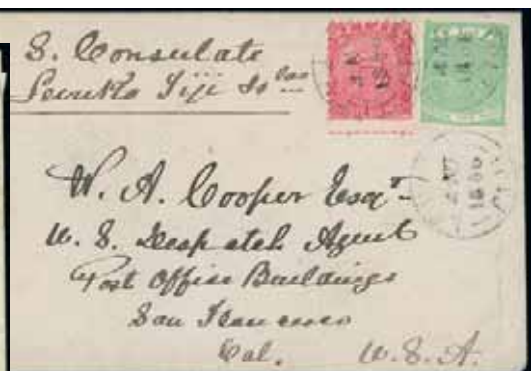 S. Consulate
Levuka Fiji Isl​as
W. A. Cooper Esqr
U. S. Despatch Agent
Post Office Buildings
San Francisco
Cal. U. S. A.